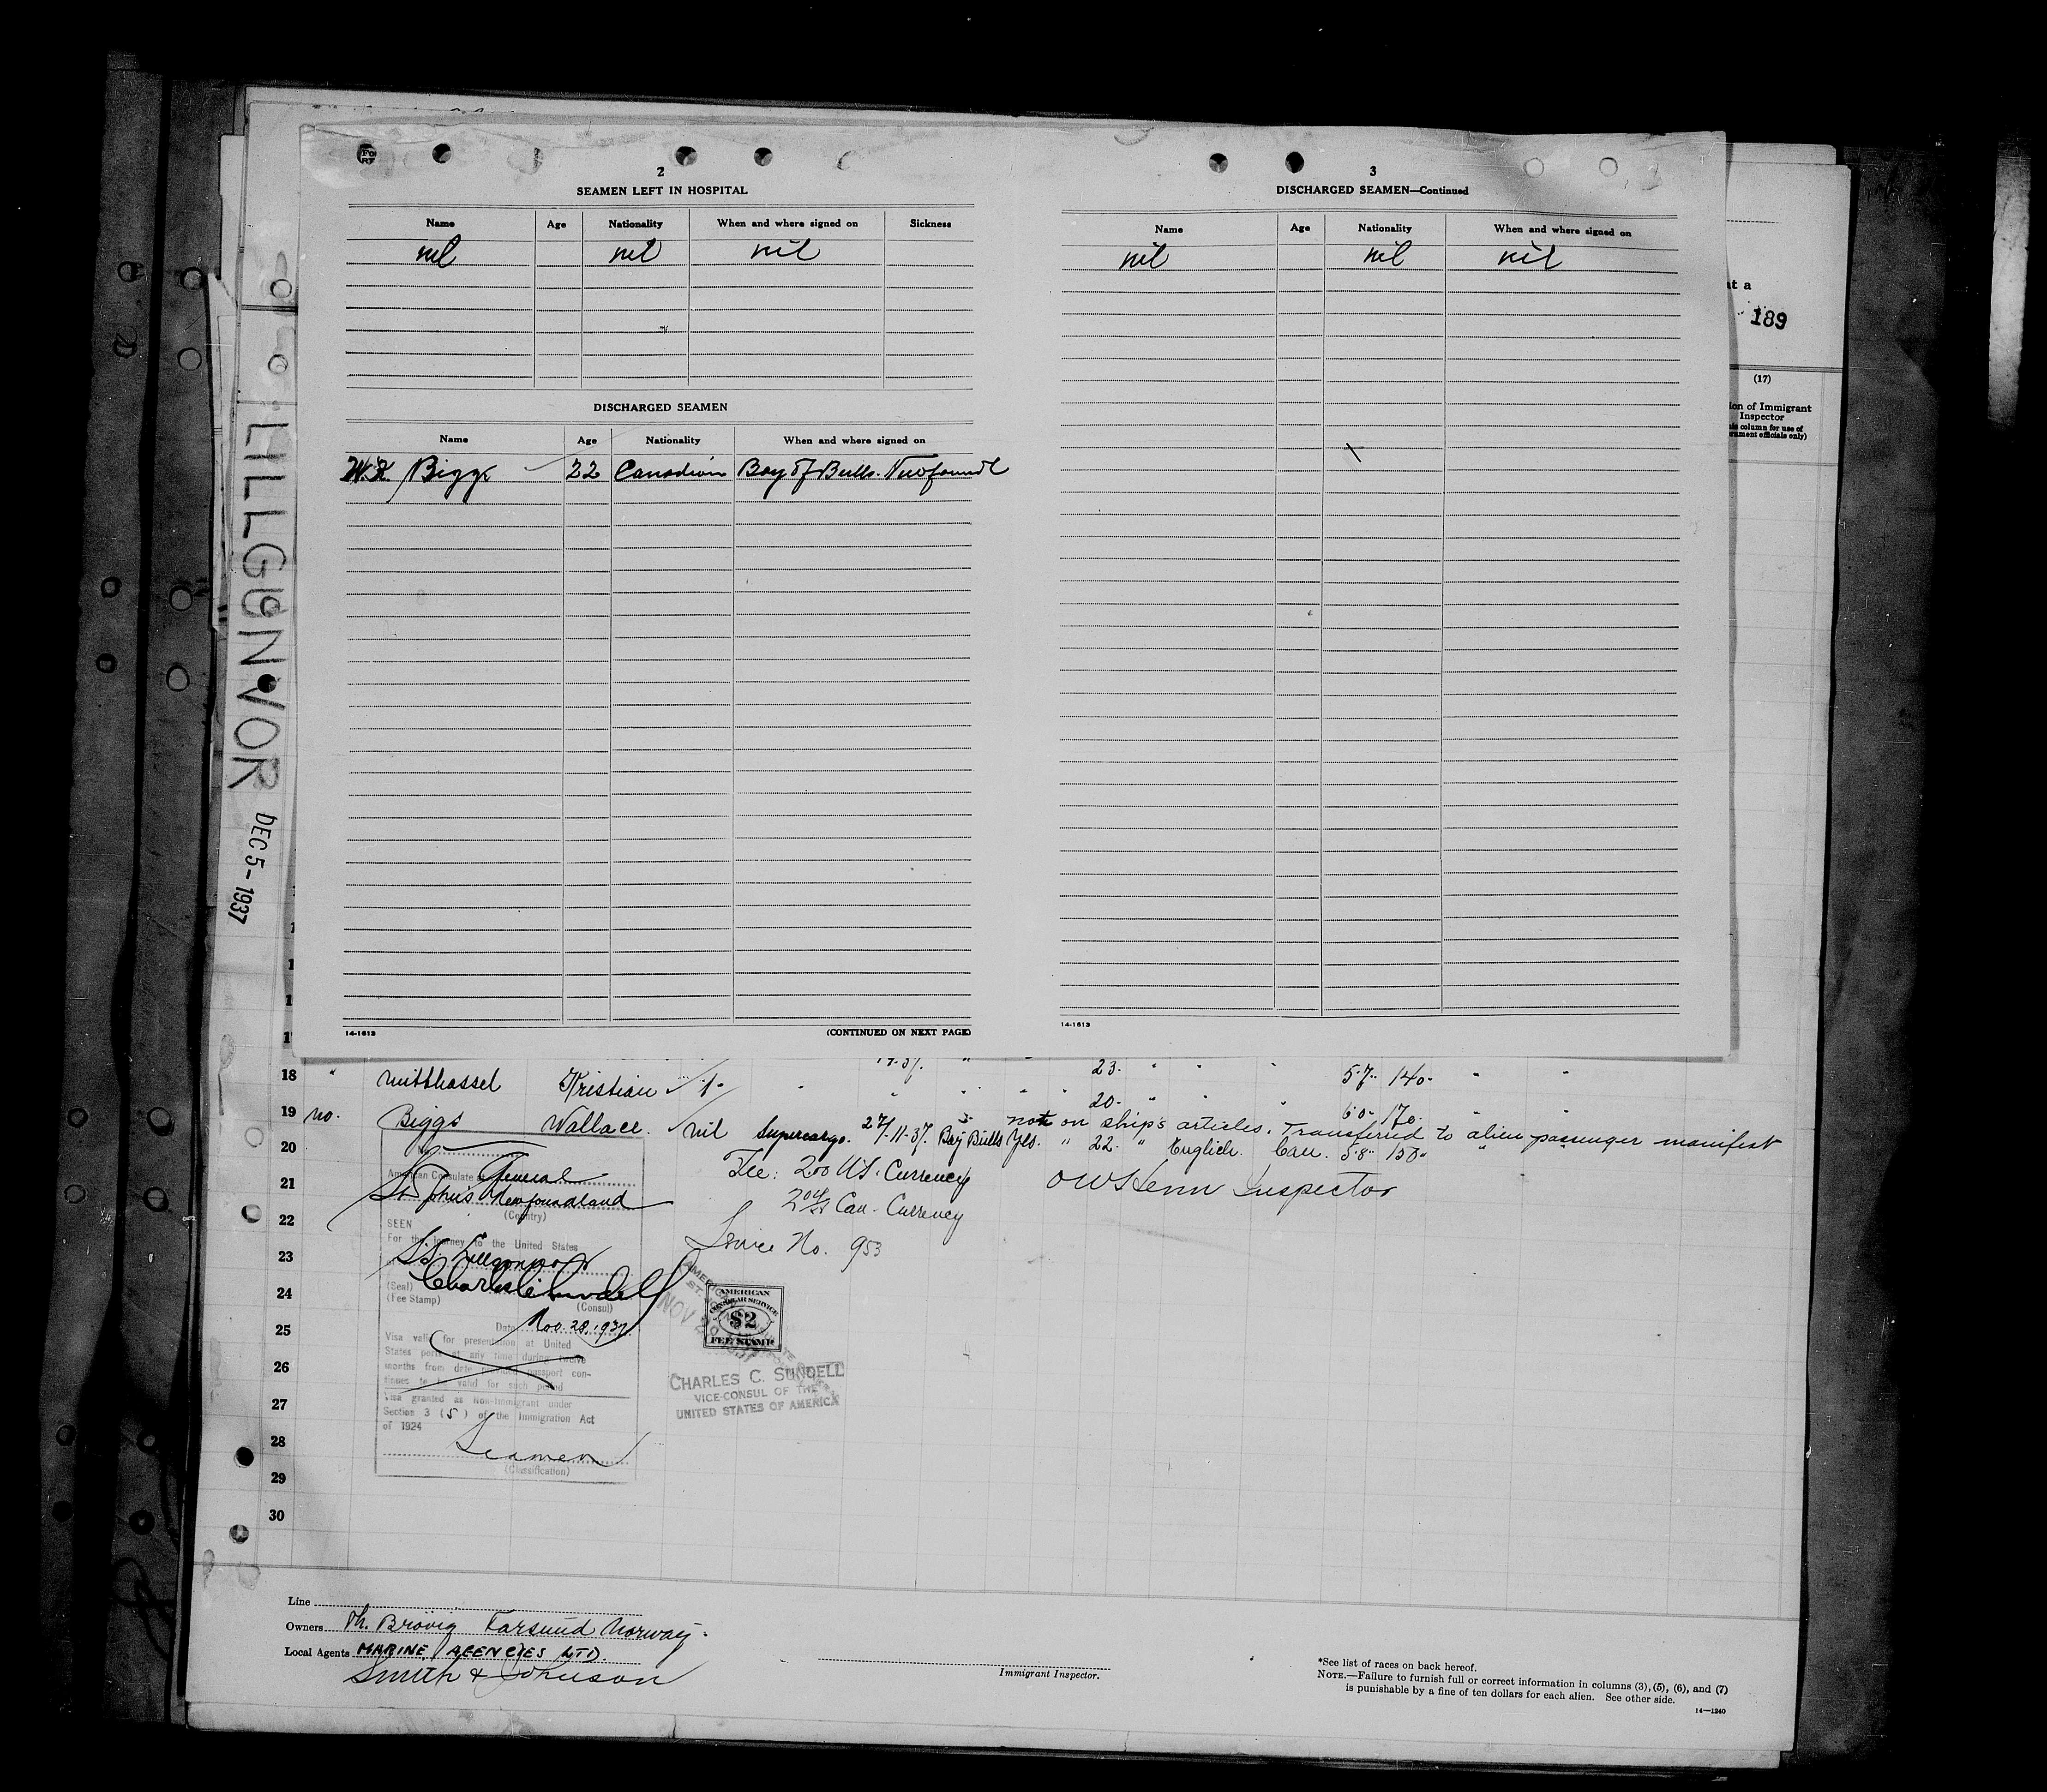 2
SEAMEN LEFT IN HOSPITAL
Name Age Nationality When and where signed on Sickness
nil nil nil
DISCHARGED SEAMEN
Name Age Nationality When and where signed on
Biggs 22 Canadian Bay of Bulls. Newfoundl
14-1613 (CONTINUED ON NEXT PAGE)
3
DISCHARGED SEAMEN—Continued
Name Age Nationality When and where signed on
nil nil nil
14-1613
at a
189
(17)
ion of Immigrant
Inspector
is column for use of
ernment officials only)
LILLGUNVOR
DEC 5-1937
23.
18 " Kristian 5-7" 140-
20-
19 no. Biggs Wallace. nil Supercargo. 27-11-37. Bay Bulls Yes. " 22. " English. Can. 5-8" 150-
60- 170.
not on ship's articles. Transferred to alien passenger manifest
20
21
22
23
24
25
26
27
28
29
30
No.
American Consulate General
St John's Newfoundland
(Country)
SEEN
For the journey to the United States
S.S. Lillgunvor
Charles C Sundell
(Seal)
(Fee Stamp)
(Consul)
Date Nov. 28, 1937
Visa valid for presentation at United
States ports at any time during twelve
months from date provided passport con-
tinues to be valid for such period
Visa granted as Non-Immigrant under
Section 3 (5) of the Immigration Act
of 1924
Seamen
(Classification)
Fee: 2.00 U.S. Currency
Can. Currency
Service No. 953
Inspector
AMERICAN
CONSULAR SERVICE
$2
FEE STAMP
NOV
CHARLES C. SUNDELL
VICE-CONSUL OF THE
UNITED STATES OF AMERICA
Line
Owners Th. Brövig Farsund Norway.
Local Agents MARINE AGENCIES LTD.
Smith & Johnson
Immigrant Inspector.
*See list of races on back hereof.
NOTE.—Failure to furnish full or correct information in columns (3), (5), (6), and (7)
is punishable by a fine of ten dollars for each alien. See other side.
14—1240